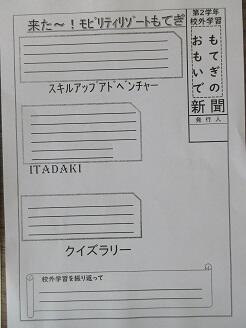 来た～！モビリティリゾートもてぎ
第２学年
校外学習
もてぎの
おもいで
新聞
発行人
スキルアップアドベンチャー
ITADAKI
クイズラリー
校外学習を振り返って